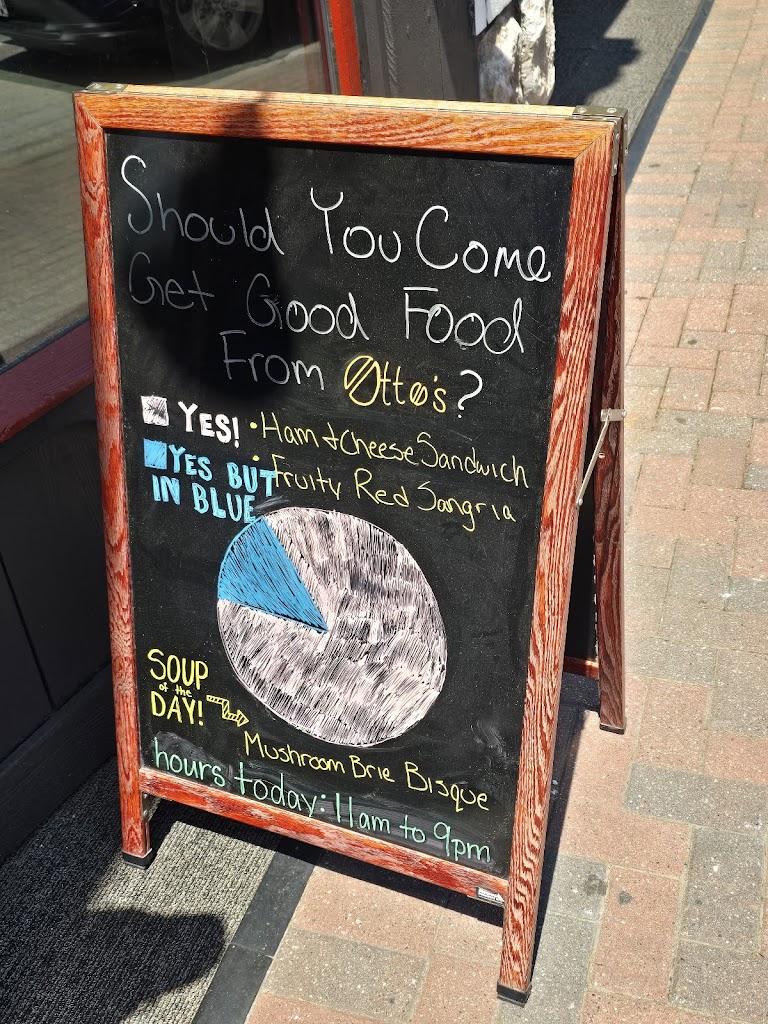 Should You Come
Get Good Food
From Otto's?
YES! • Ham & Cheese Sandwich
YES BUT • Fruity Red Sangria
IN BLUE
SOUP
of the
DAY!
Mushroom Brie Bisque
hours today: 11am to 9pm